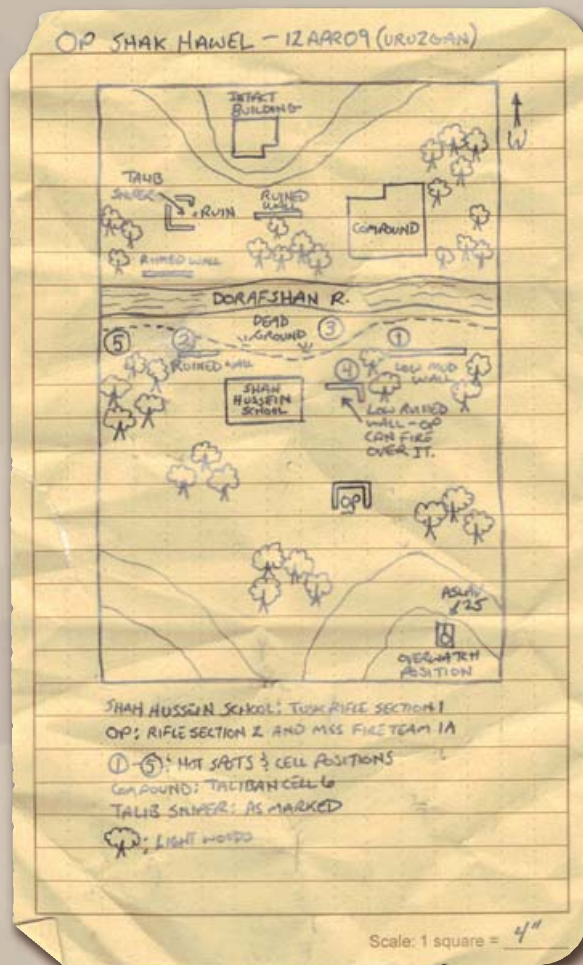 OP SHAK HAWEL - 12APR09 (URUZGAN)
INTACT
BUILDING
N
TALIB
SNIPER
RUIN
RUINED
WALL
COMPOUND
RUINED WALL
DORAFSHAN R.
DEAD
GROUND
5
2
3
1
RUINED WALL
LOW MUD
WALL
SHAH
HUSSEIN
SCHOOL
4
LOW RUINED
WALL - OP
CAN FIRE
OVER IT.
OP
ASLAV
25
OVERWATCH
POSITION
SHAH HUSSEIN SCHOOL: TUSK RIFLE SECTION 1
OP: RIFLE SECTION 2 AND MSS FIRE TEAM 1A
1-5: HOT SPOTS & CELL POSITIONS
COMPOUND: TALIBAN CELL 6
TALIB SNIPER: AS MARKED
: LIGHT WOODS
Scale: 1 square = 4"